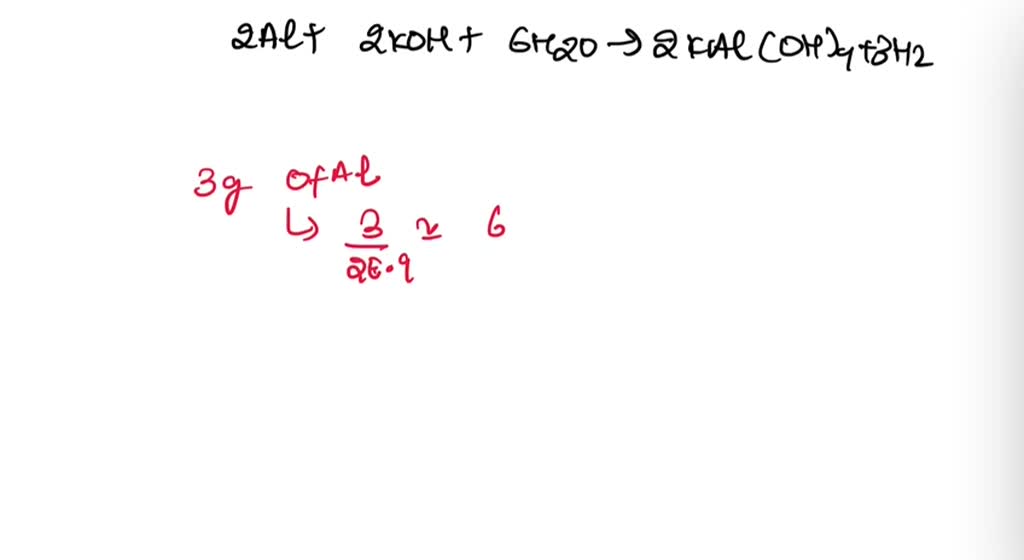 2Al+ 2KOH + 6H2O → 2KAl(OH)4+3H2
3g of Al
↳ 3 ≈ 6
26.9